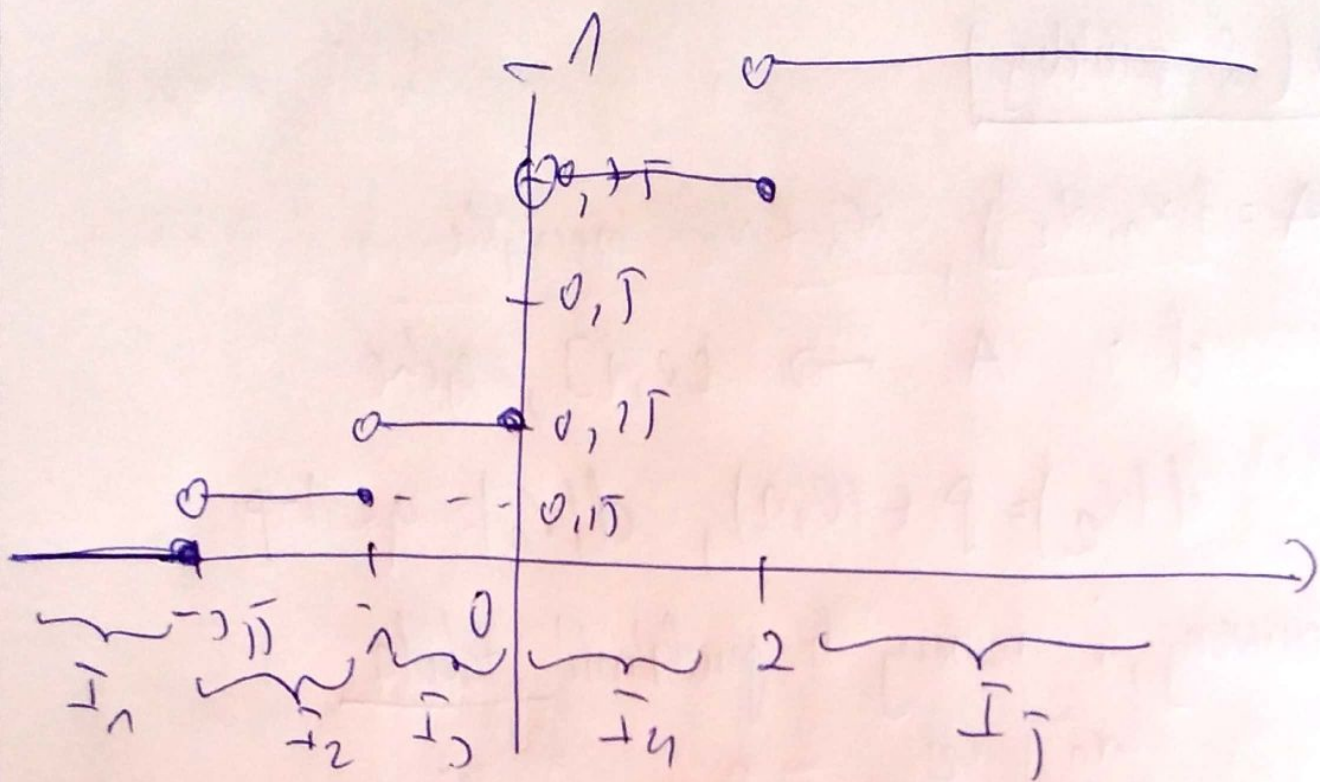 1
0,75
0,5
0,25
0,15
-1 0 2
I1 I2 I3 I4 I5